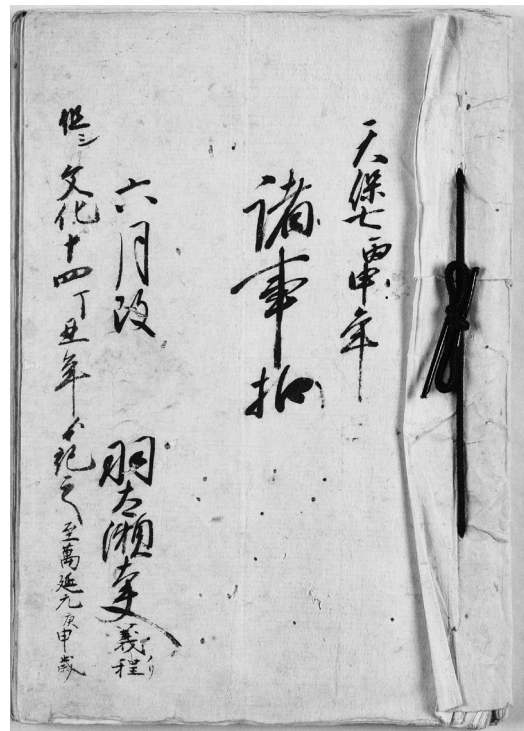 天保七丙申年
諸事扣
六月改 羽太瀬 義程
但シ文化十四丁丑年ゟ記之 至萬延元庚申歳